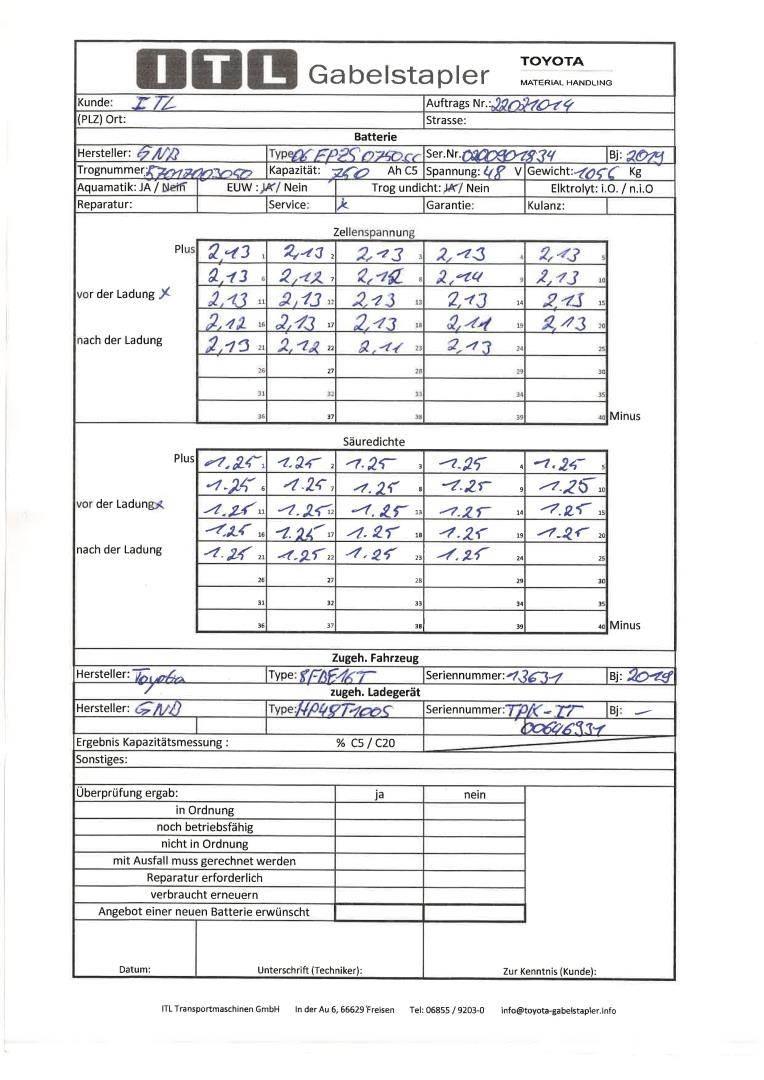 ITL Gabelstapler TOYOTA
MATERIAL HANDLING
Kunde: ITL Auftrags Nr.: 22021014
(PLZ) Ort: Strasse:
Batterie
Hersteller: GNB Type: 06 EPZS 0750 SC Ser.Nr. 0200901834 Bj: 2019
Trognummer: 57017003050 Kapazität: 750 Ah C5 Spannung: 48 V Gewicht: 1056 Kg
Aquamatik: JA / Nein EUW : JA / Nein Trog undicht: JA / Nein Elktrolyt: i.O. / n.i.O
Reparatur: Service: x Garantie: Kulanz:
Zellenspannung
Plus 2,13 1 2,13 2 2,13 3 2,13 4 2,13 5
2,13 6 2,12 7 2,12 8 2,14 9 2,13 10
vor der Ladung x 2,13 11 2,13 12 2,13 13 2,13 14 2,13 15
2,12 16 2,13 17 2,13 18 2,11 19 2,13 20
nach der Ladung 2,13 21 2,12 22 2,11 23 2,13 24 25
26 27 28 29 30
31 32 33 34 35
36 37 38 39 40 Minus
Säuredichte
Plus 1.25 1 1.25 2 1.25 3 1.25 4 1.25 5
1.25 6 1.25 7 1.25 8 1.25 9 1.25 10
vor der Ladung x 1.25 11 1.25 12 1.25 13 1.25 14 1.25 15
1.25 16 1.25 17 1.25 18 1.25 19 1.25 20
nach der Ladung 1.25 21 1.25 22 1.25 23 1.25 24 25
26 27 28 29 30
31 32 33 34 35
36 37 38 39 40 Minus
Zugeh. Fahrzeug
Hersteller: Toyota Type: 8FBE16T Seriennummer: 13631 Bj: 2019
zugeh. Ladegerät
Hersteller: GNB Type: HP48T100S Seriennummer: TPK-IT Bj: –
00646931
Ergebnis Kapazitätsmessung : % C5 / C20
Sonstiges:
Überprüfung ergab: ja nein
in Ordnung
noch betriebsfähig
nicht in Ordnung
mit Ausfall muss gerechnet werden
Reparatur erforderlich
verbraucht erneuern
Angebot einer neuen Batterie erwünscht
Datum: Unterschrift (Techniker): Zur Kenntnis (Kunde):
ITL Transportmaschinen GmbH In der Au 6, 66629 Freisen Tel: 06855 / 9203-0 info@toyota-gabelstapler.info